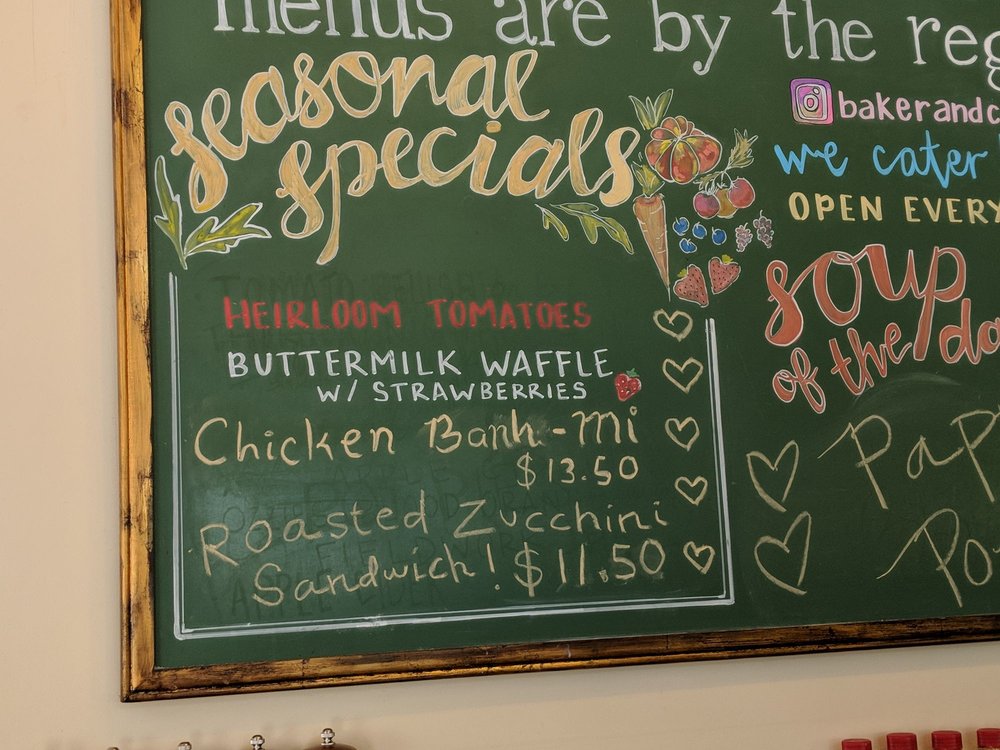 menus are by the reg
seasonal
specials
HEIRLOOM TOMATOES
BUTTERMILK WAFFLE
W/ STRAWBERRIES
Chicken Banh-Mi
$13.50
Roasted Zucchini
Sandwich! $11.50
bakerandc
we cater
OPEN EVERY
soup
of the da
Pap
Po